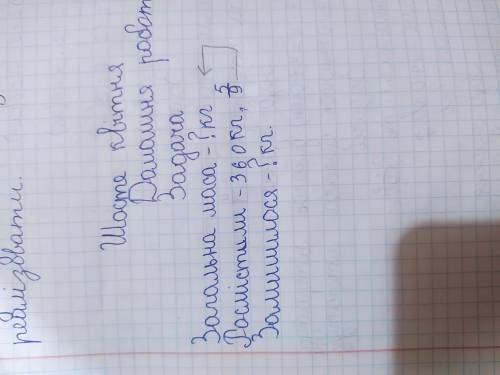 реалізувати.
Шосте квітня
Домашня робот
Задача
Загальна маса - ? кг
Розмістили - 360 кг, 5/9
Залишилося - ? кг.